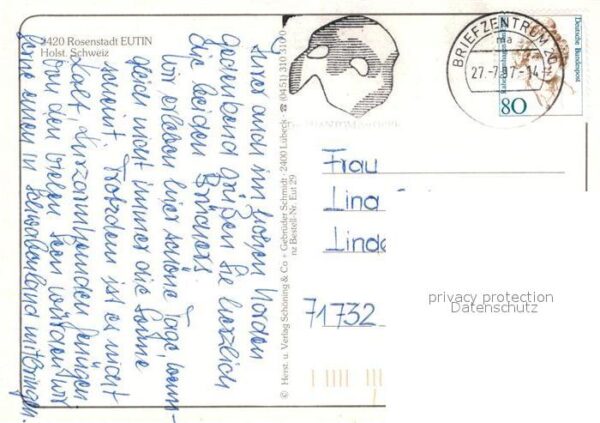 2420 Rosenstadt EUTIN
Holst. Schweiz
auch im hohen Norden
grüßen Sie herzlich
die beiden
wir erleben hier schöne Tage, wenn-
gleich nicht immer die Sonne
scheint. Trotzdem ist es nicht
kalt, kurzärmelig
Von den vielen Seen würden wir
gerne einen in Schwabenland mitbringen.
© Herst. u. Verlag Schöning & Co + Gebrüder Schmidt · 2400 Lübeck · ☎ (04 51) 310 310
nz Bestell-Nr. Eut 29
BRIEFZENTRUM 20
ma
27.-7.97.-14
Deutsche Bundespost
80
Frau
Lina
Linde
71732
privacy protection
Datenschutz